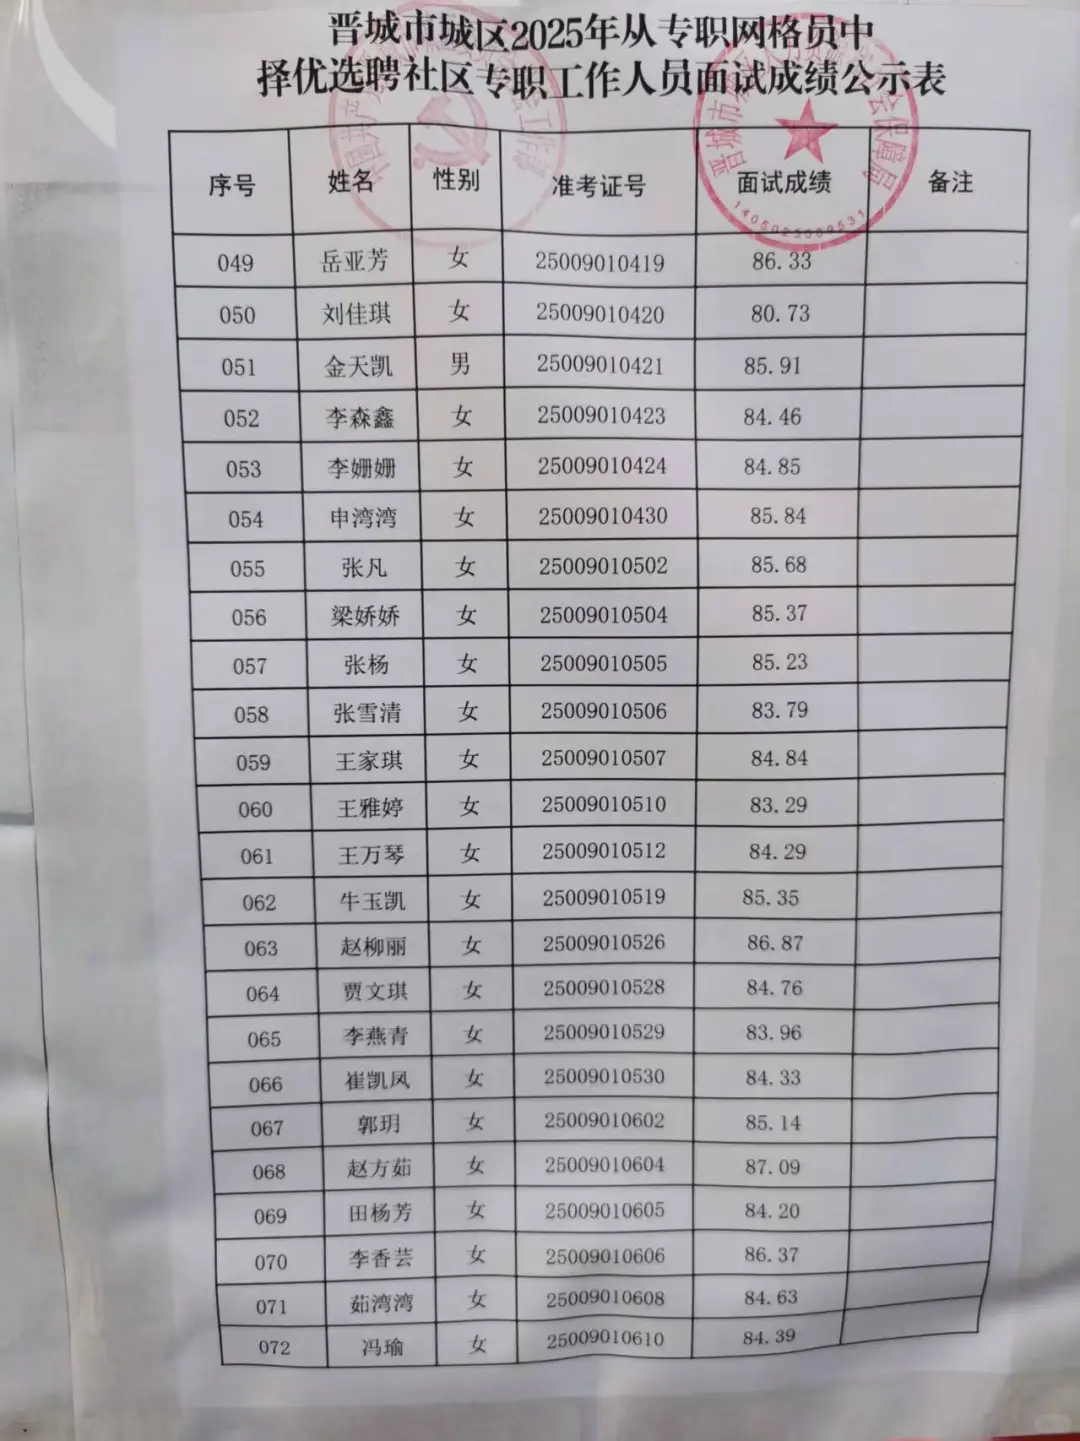 晋城市城区2025年从专职网格员中
择优选聘社区专职工作人员面试成绩公示表
序号 姓名 性别 准考证号 面试成绩 备注
049 岳亚芳 女 25009010419 86.33
050 刘佳琪 女 25009010420 80.73
051 金天凯 男 25009010421 85.91
052 李森鑫 女 25009010423 84.46
053 李姗姗 女 25009010424 84.85
054 申湾湾 女 25009010430 85.84
055 张凡 女 25009010502 85.68
056 梁娇娇 女 25009010504 85.37
057 张杨 女 25009010505 85.23
058 张雪清 女 25009010506 83.79
059 王家琪 女 25009010507 84.84
060 王雅婷 女 25009010510 83.29
061 王万琴 女 25009010512 84.29
062 牛玉凯 女 25009010519 85.35
063 赵柳丽 女 25009010526 86.87
064 贾文琪 女 25009010528 84.76
065 李燕青 女 25009010529 83.96
066 崔凯凤 女 25009010530 84.33
067 郭玥 女 25009010602 85.14
068 赵方茹 女 25009010604 87.09
069 田杨芳 女 25009010605 84.20
070 李香芸 女 25009010606 86.37
071 茹湾湾 女 25009010608 84.63
072 冯瑜 女 25009010610 84.39